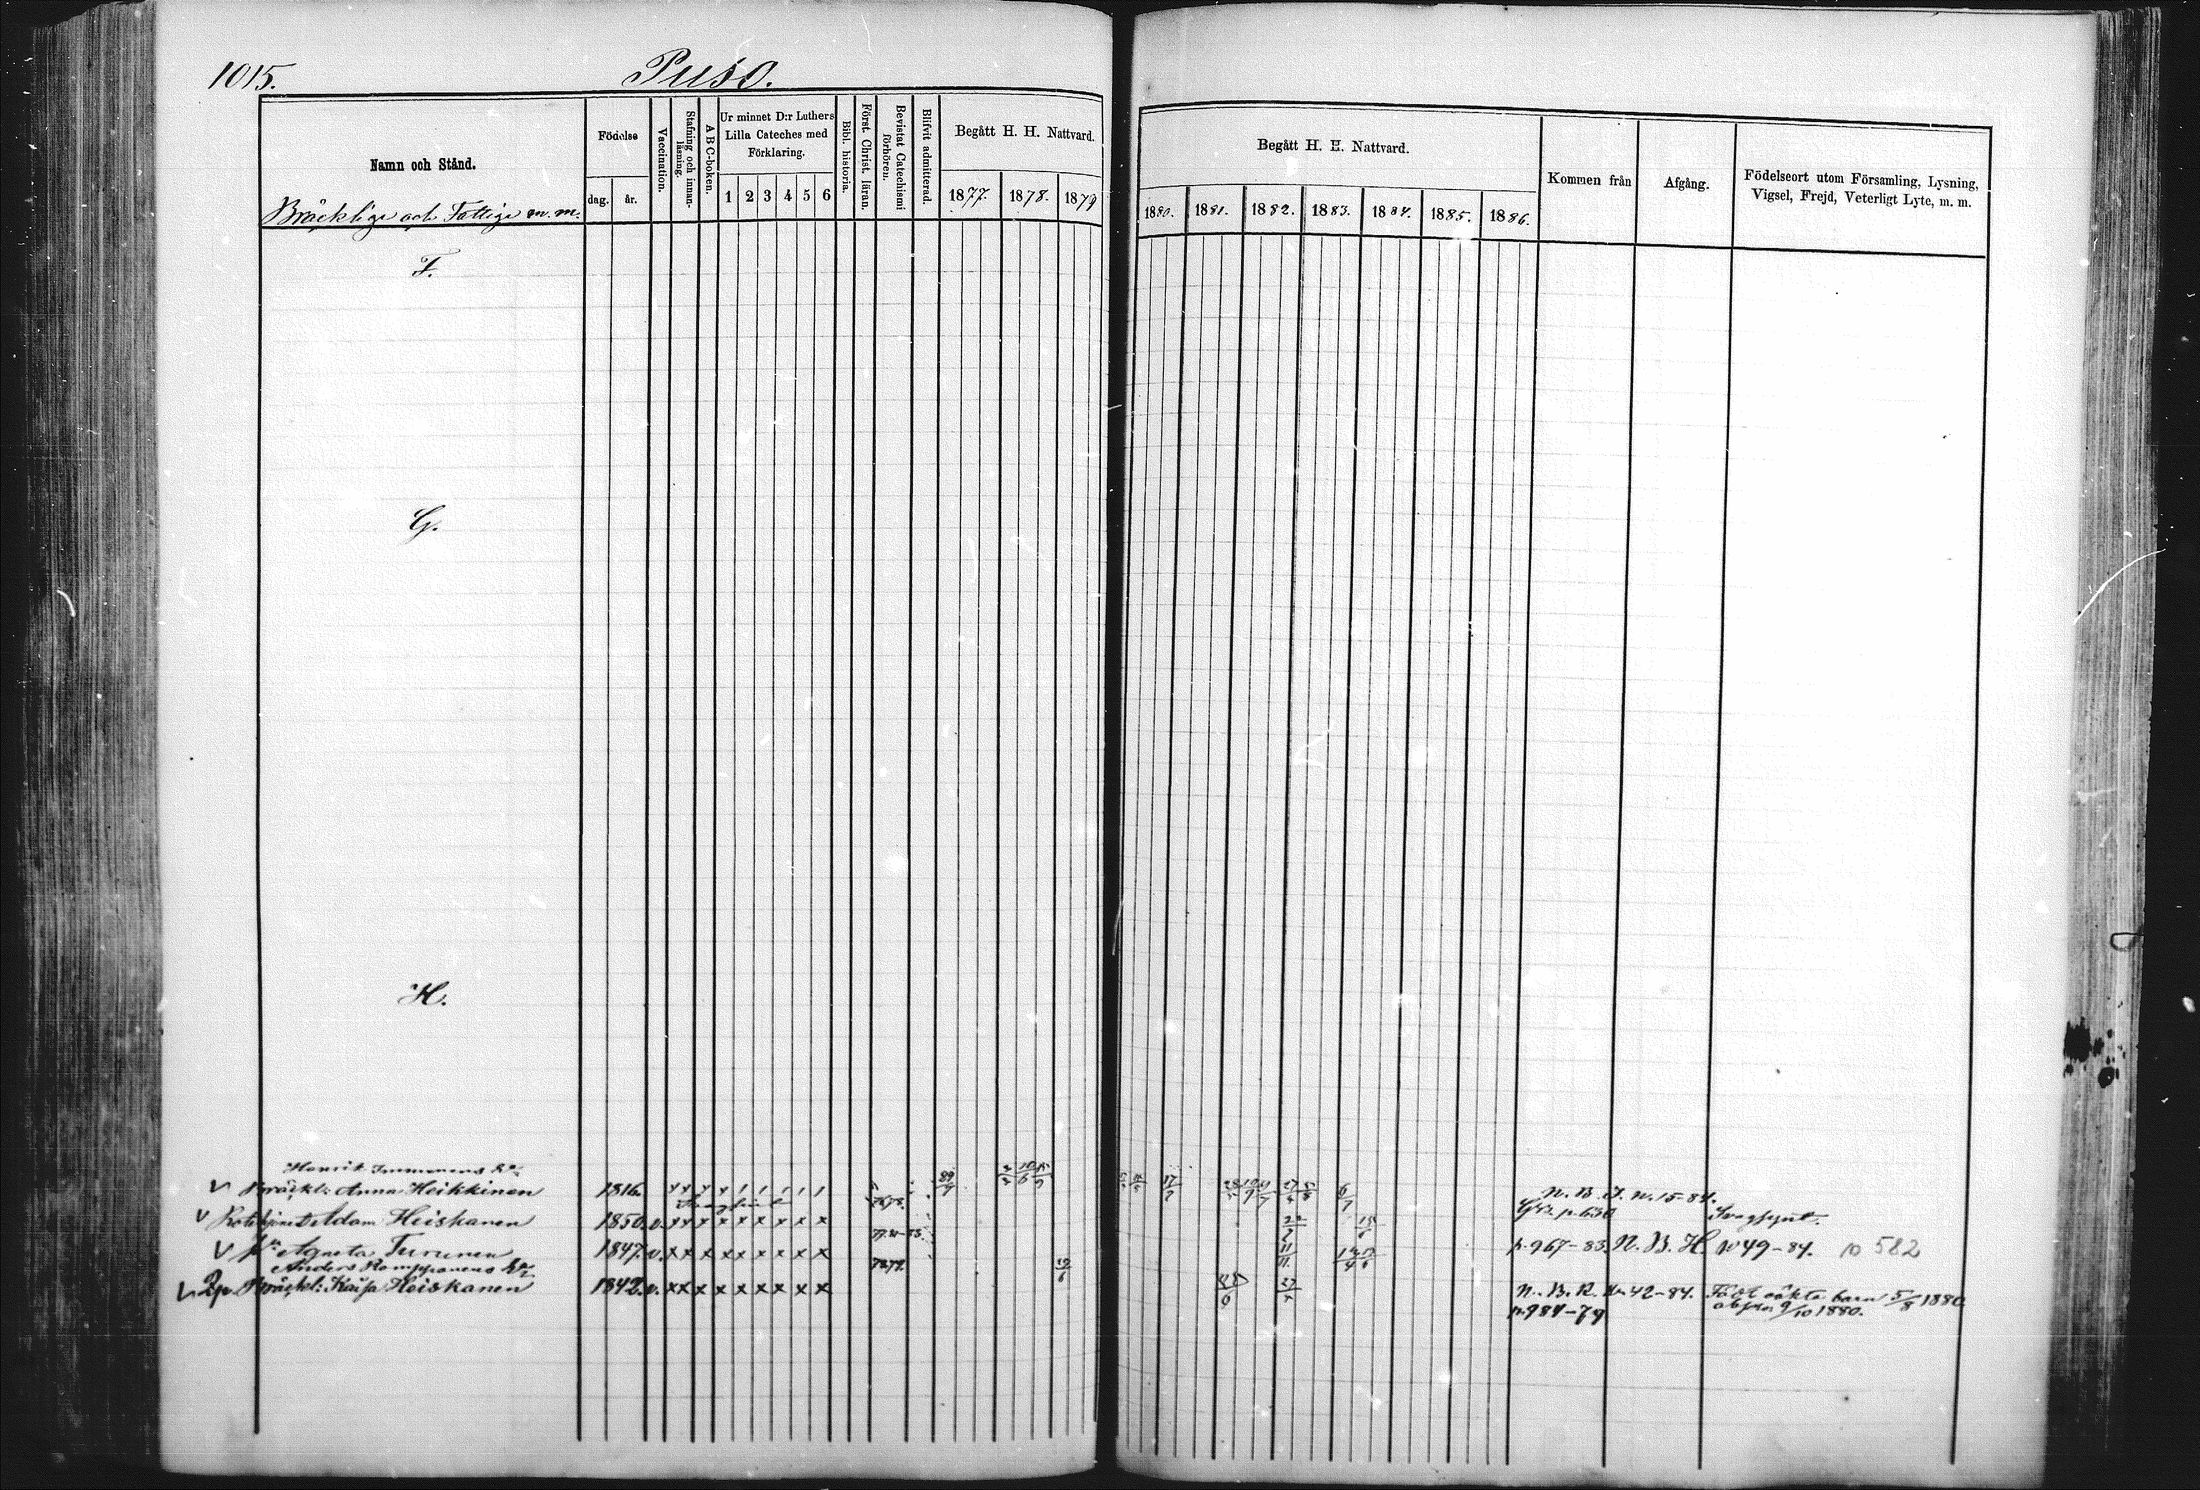 1015.
Puso.
Namn och Stånd.
Bräcklige och Fattige m. m.
Födelse
dag.
år.
Vaccination.
Stafning och innanläsning.
A B C-boken.
Ur minnet D:r Luthers
Lilla Cateches med
Förklaring.
1 2 3 4 5 6
Bibl. historia.
Först. Christ. läran.
Bevistat Catechismi
förhören.
Blifvit admitterad.
Begått H. H. Nattvard.
1877. 1878. 1879
Begått H. H. Nattvard.
1880. 1881. 1882. 1883. 1884. 1885. 1886.
Kommen från
Afgång.
Födelseort utom Församling, Lysning,
Vigsel, Frejd, Veterligt Lyte, m. m.
F.
G.
H.
Henrik Immonens
Bräckl: Anna Heikkinen 1816.
Svagsint
Adam Heiskanen 1850. v. x x x x x x x x x x
Svagsynt.
Agneta Turunen 1847. v. x x x x x x x x x x
p. 967-83. N. B. H. No 49-84. 582
Anders Romppanens
Bräckl: Kaisa Heiskanen 1842. v. x x x x x x x x x x
N. B. R. No 42-84. Födt oäkta barn 5/8 1880
p. 984-79
9/10 1880.